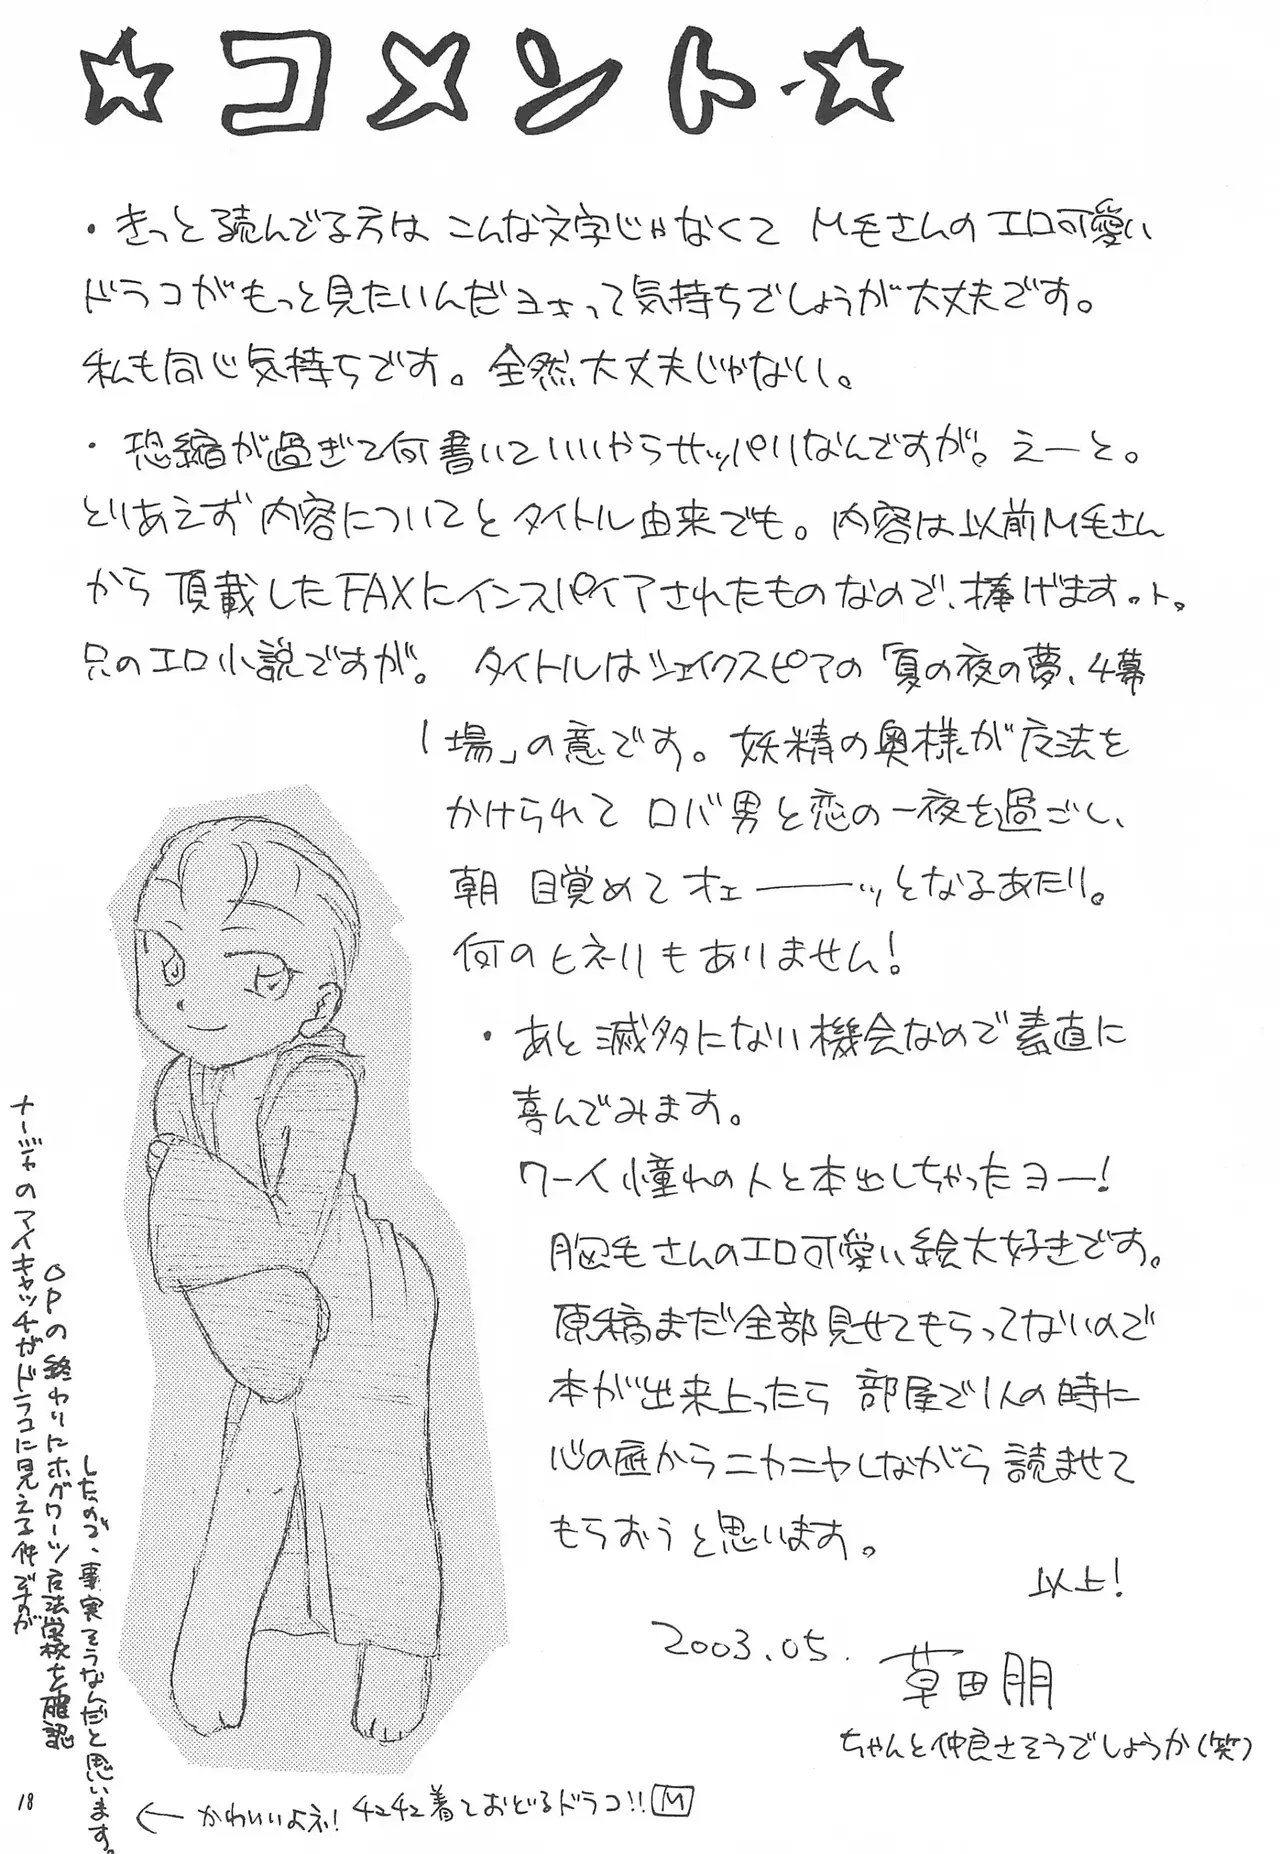 ☆コメント☆
・きっと読んでる方は こんな文字じゃなくて M毛さんの エロ可愛い
ドラコがもっと見たいんだヨオって気持ちでしょうが大丈夫です。
私も同じ気持ちです。全然大丈夫じゃない。
・恐縮が過ぎて何書いていいやらサッパリなんですが。えーと。
とりあえず内容についてとタイトル由来でも。内容は以前M毛さん
から頂載したFAXにインスパイアされたものなので、捧げます。ト。
只のエロ小説ですが。 タイトルはシェイクスピアの「夏の夜の夢、4幕
1場」の意です。妖精の奥様が魔法を
かけられて ロバ男と恋の一夜を過ごし、
朝 目覚めてオェーーッとなるあたり。
何のヒネリもありません!
・あと滅多にない機会なので素直に
喜んでみます。
ワーイ憧れの人と本出しちゃったヨー!
胸毛さんのエロ可愛い絵大好きです。
原稿まだ全部見せてもらってないので
本が出来上ったら 部屋で1人の時に
心の底からニヤニヤしながら読ませて
もらおうと思います。
以上!
2003.05.
草田朋
ちゃんと仲良さそうでしょうか(笑)
ナージャのアイキャッチがドラコに見える件ですが
OPの終わりにホグワーツ魔法学校を確認
したので、事実そうなんだと思います。
← かわいいよネ! チュチュ着ておどるドラコ!! M
18